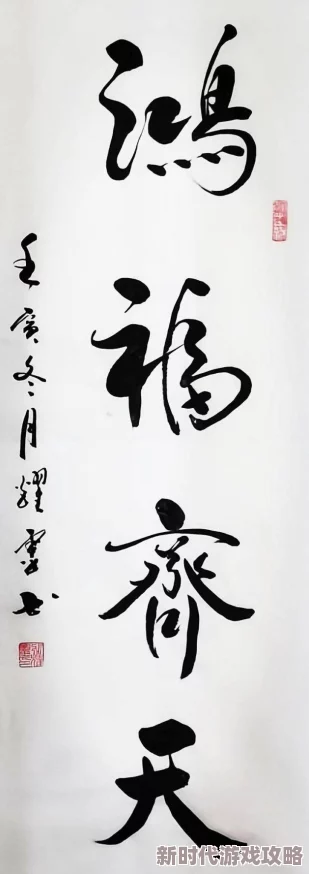 鴻福齊天
壬寅冬月耀雲书
新时代游戏攻略